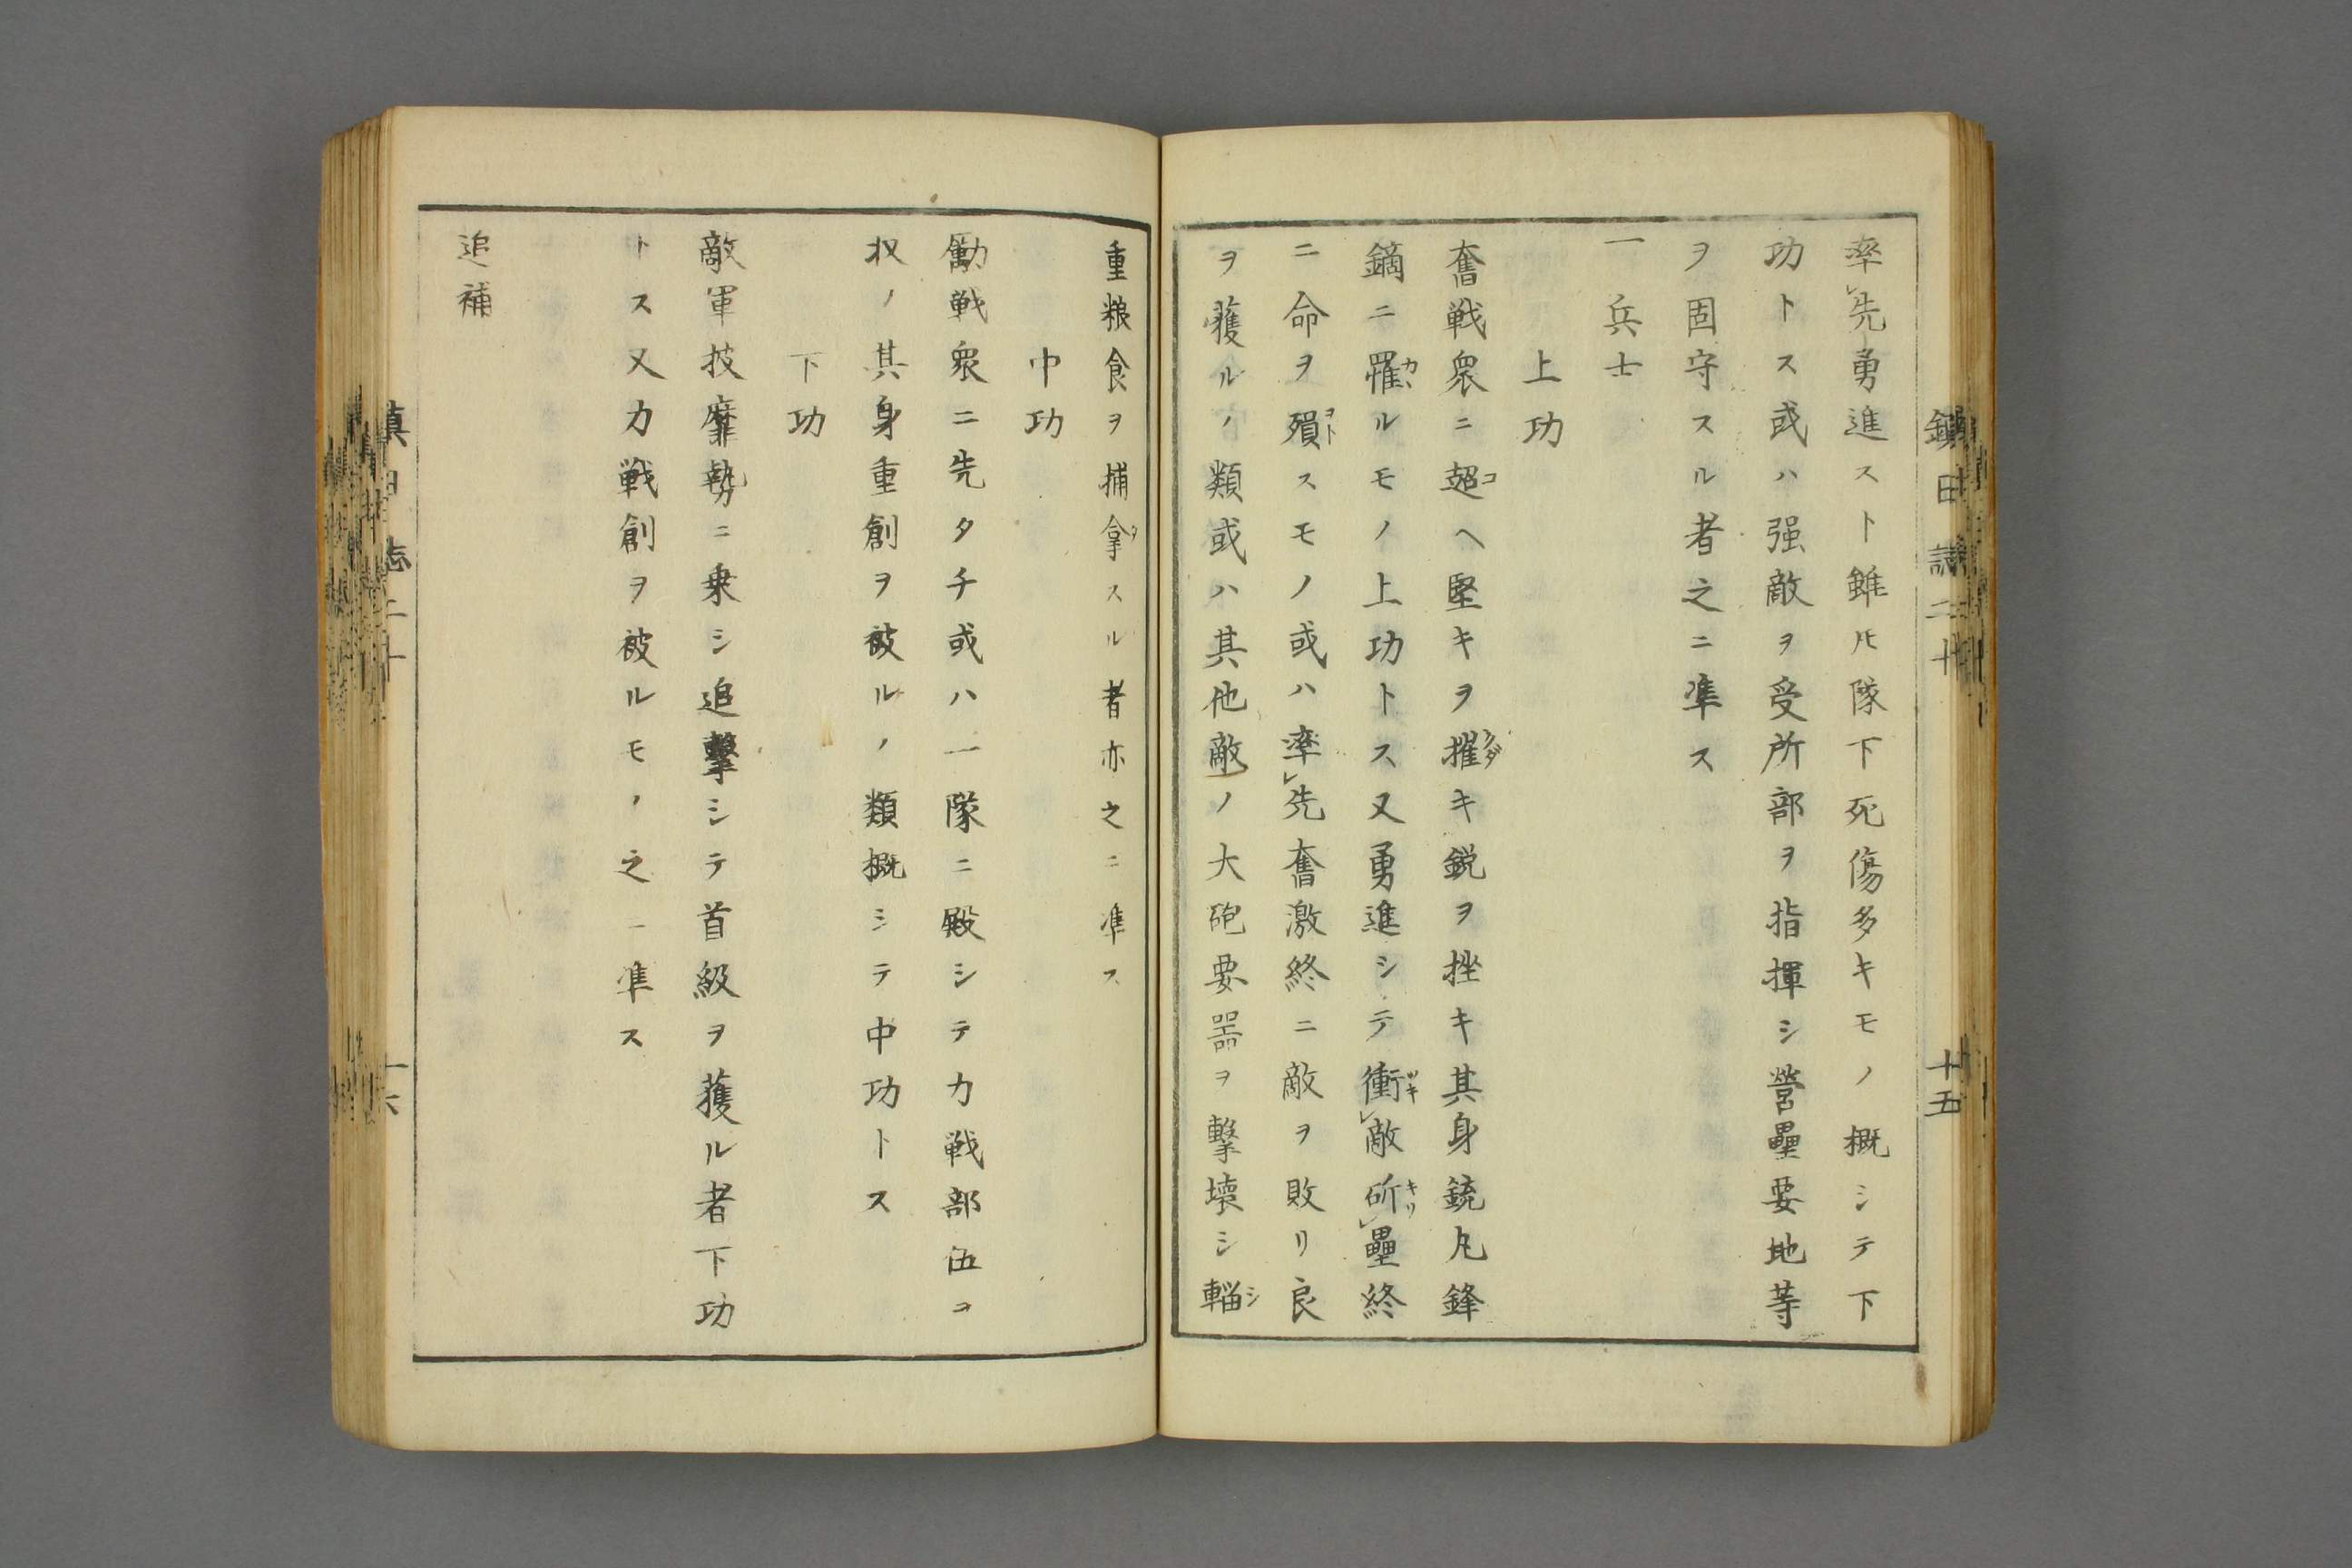 鎮日誌二十
十五
率レ先勇進スト雖𪜈隊下死傷多キモノ概シテ下
功トス或ハ强敵ヲ受所部ヲ指揮シ營壘要地等
ヲ固守スル者之ニ凖ス
一兵士
上功
奮戦衆ニ超コヘ堅キヲ摧クダキ鋭ヲ挫キ其身銃丸鋒
鏑ニ罹カヽルモノ上功トス又勇進シテ衝ツキレ敵斫キリレ壘終
ニ命ヲ殞ヲトスモノ或ハ率レ先奮激終ニ敵ヲ敗リ良
ヲ獲ルノ類或ハ其他敵ノ大砲要噐ヲ擊壊シ輜シ
重粮食ヲ捕拿タスル者亦之ニ凖ス
中功
勵戦衆ニ先タチ或ハ一隊ニ殿シテ力戦部伍ヲ
収ノ其身重創ヲ被ルノ類概シテ中功トス
下功
敵軍披靡勢ニ乗シ追擊シテ首級ヲ獲ル者下功
トス又力戦創ヲ被ルモノ之ニ凖ス
追補
鎮日志二十
十六